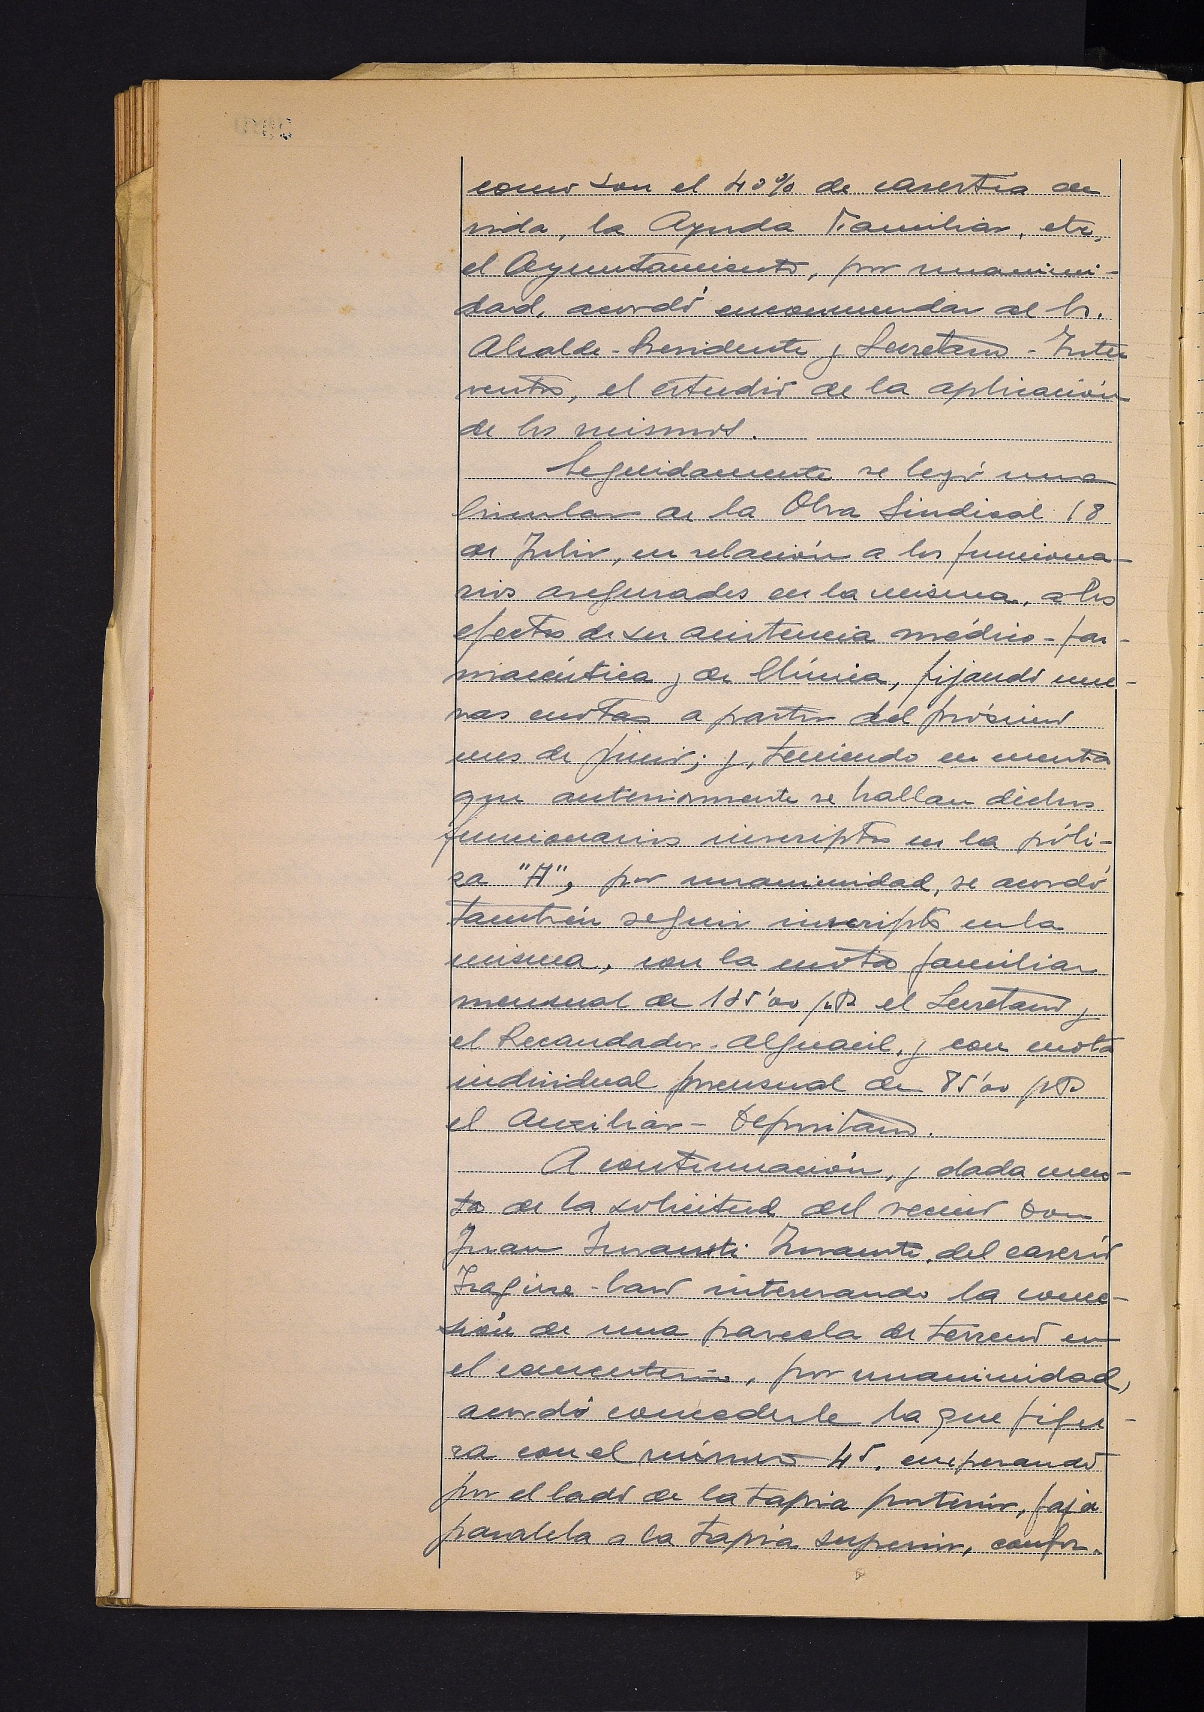 como son el 40% de carestía de
vida, la Ayuda Familiar, etc,
el Ayuntamiento, por unanimi-
dad, acordó encomendar al Sr.
Alcalde-Presidente y Secretario-Inter
ventor, el estudio de la aplicación
de los mismos.
Seguidamente se leyó una
Circular de la Obra Sindical 18
de Julio, en relación a los funciona-
rios asegurados en la misma, a los
efectos de su asistencia médico-far-
macéutica y de Clínica, fijando nue-
vas cuotas a partir del próximo
mes de junio; y, teniendo en cuenta
que anteriormente se hallan dichos
funcionarios inscriptos en la póli-
za "A", por unanimidad, se acordó
también seguir inscripto en la
misma, con la cuota familiar
mensual de ptas el Secretario y
el Recaudador-Alguacil, y con cuota
individual mensual de 85'00 ptas
el Auxiliar-Depositario.
A continuación, y dada cuen-
ta de la solicitud del vecino Don
Juan del caserío
interesando la conce-
sión de una parcela de terreno en
el cementerio, por unanimidad,
acordó concederle la que figu-
ra con el número 45, empezando
por el lado de la tapia posterior, faja
paralela a la tapia superior, confor-